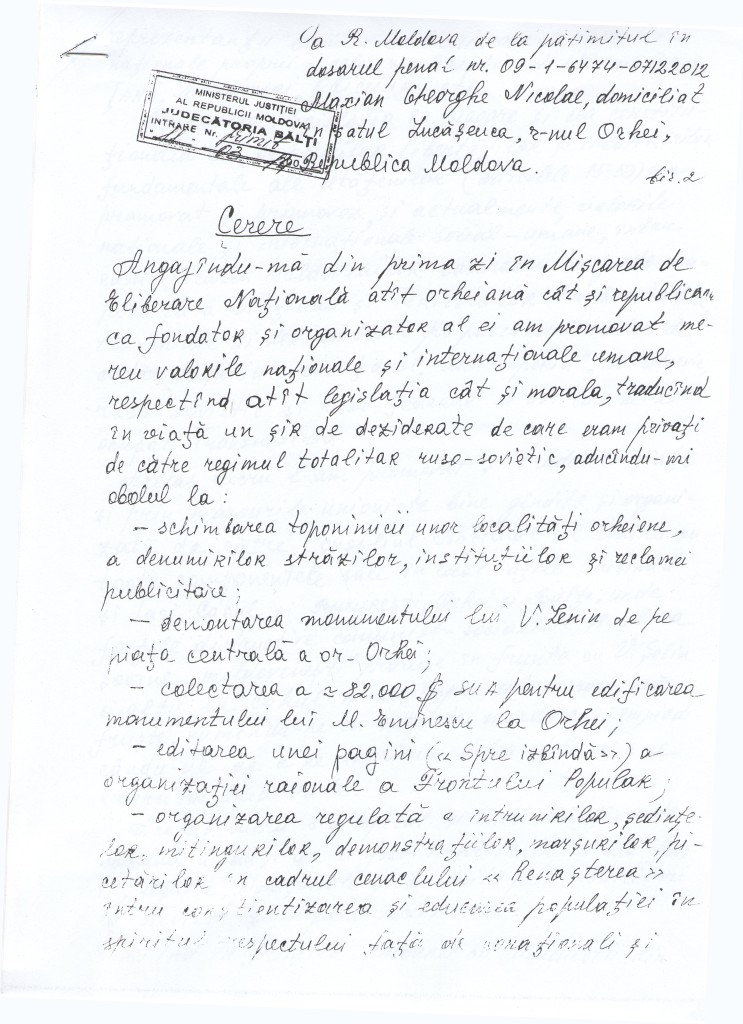 a R. Moldova de la pătimitul în
dosarul penal nr. 09-1-6474-07122012
Marian Gheorghe Nicolae, domiciliat
în satul Lucășeuca, r-nul Orhei,
Republica Moldova.
MINISTERUL JUSTIȚIEI
AL REPUBLICII MOLDOVA
JUDECĂTORIA BĂLȚI
INTRARE Nr.
Cerere
Angajîndu-mă din prima zi în Mișcarea de
Eliberare Națională atît orheiană cât și republicană
ca fondator și organizator al ei am promovat me-
reu valorile naționale și internaționale umane,
respectînd atît legislația cât și morala, traducînd
în viață un șir de deziderate de care eram privați
de către regimul totalitar ruso-sovietic, aducându-mi
obolul la:
– schimbarea toponimicii unor localități orheiene,
a denumirilor străzilor, instituțiilor și reclamei
publicitare;
– demontarea monumentului lui V. Lenin de pe
piața centrală a or- Orhei;
– colectarea a ≈ 82.000 $ SUA pentru edificarea
monumentului lui M. Eminescu la Orhei;
– editarea unei pagini («Spre izbîndă») a
organizației raionale a Frontului Popular;
– organizarea regulată a întrunirilor, ședințe-
lor, mitingurilor, demonstrațiilor, marșurilor, pi-
cetărilor în cadrul cenaclului «Renașterea»
întru conștientizarea și educarea populației în
spiritul respectului față de conaționali și